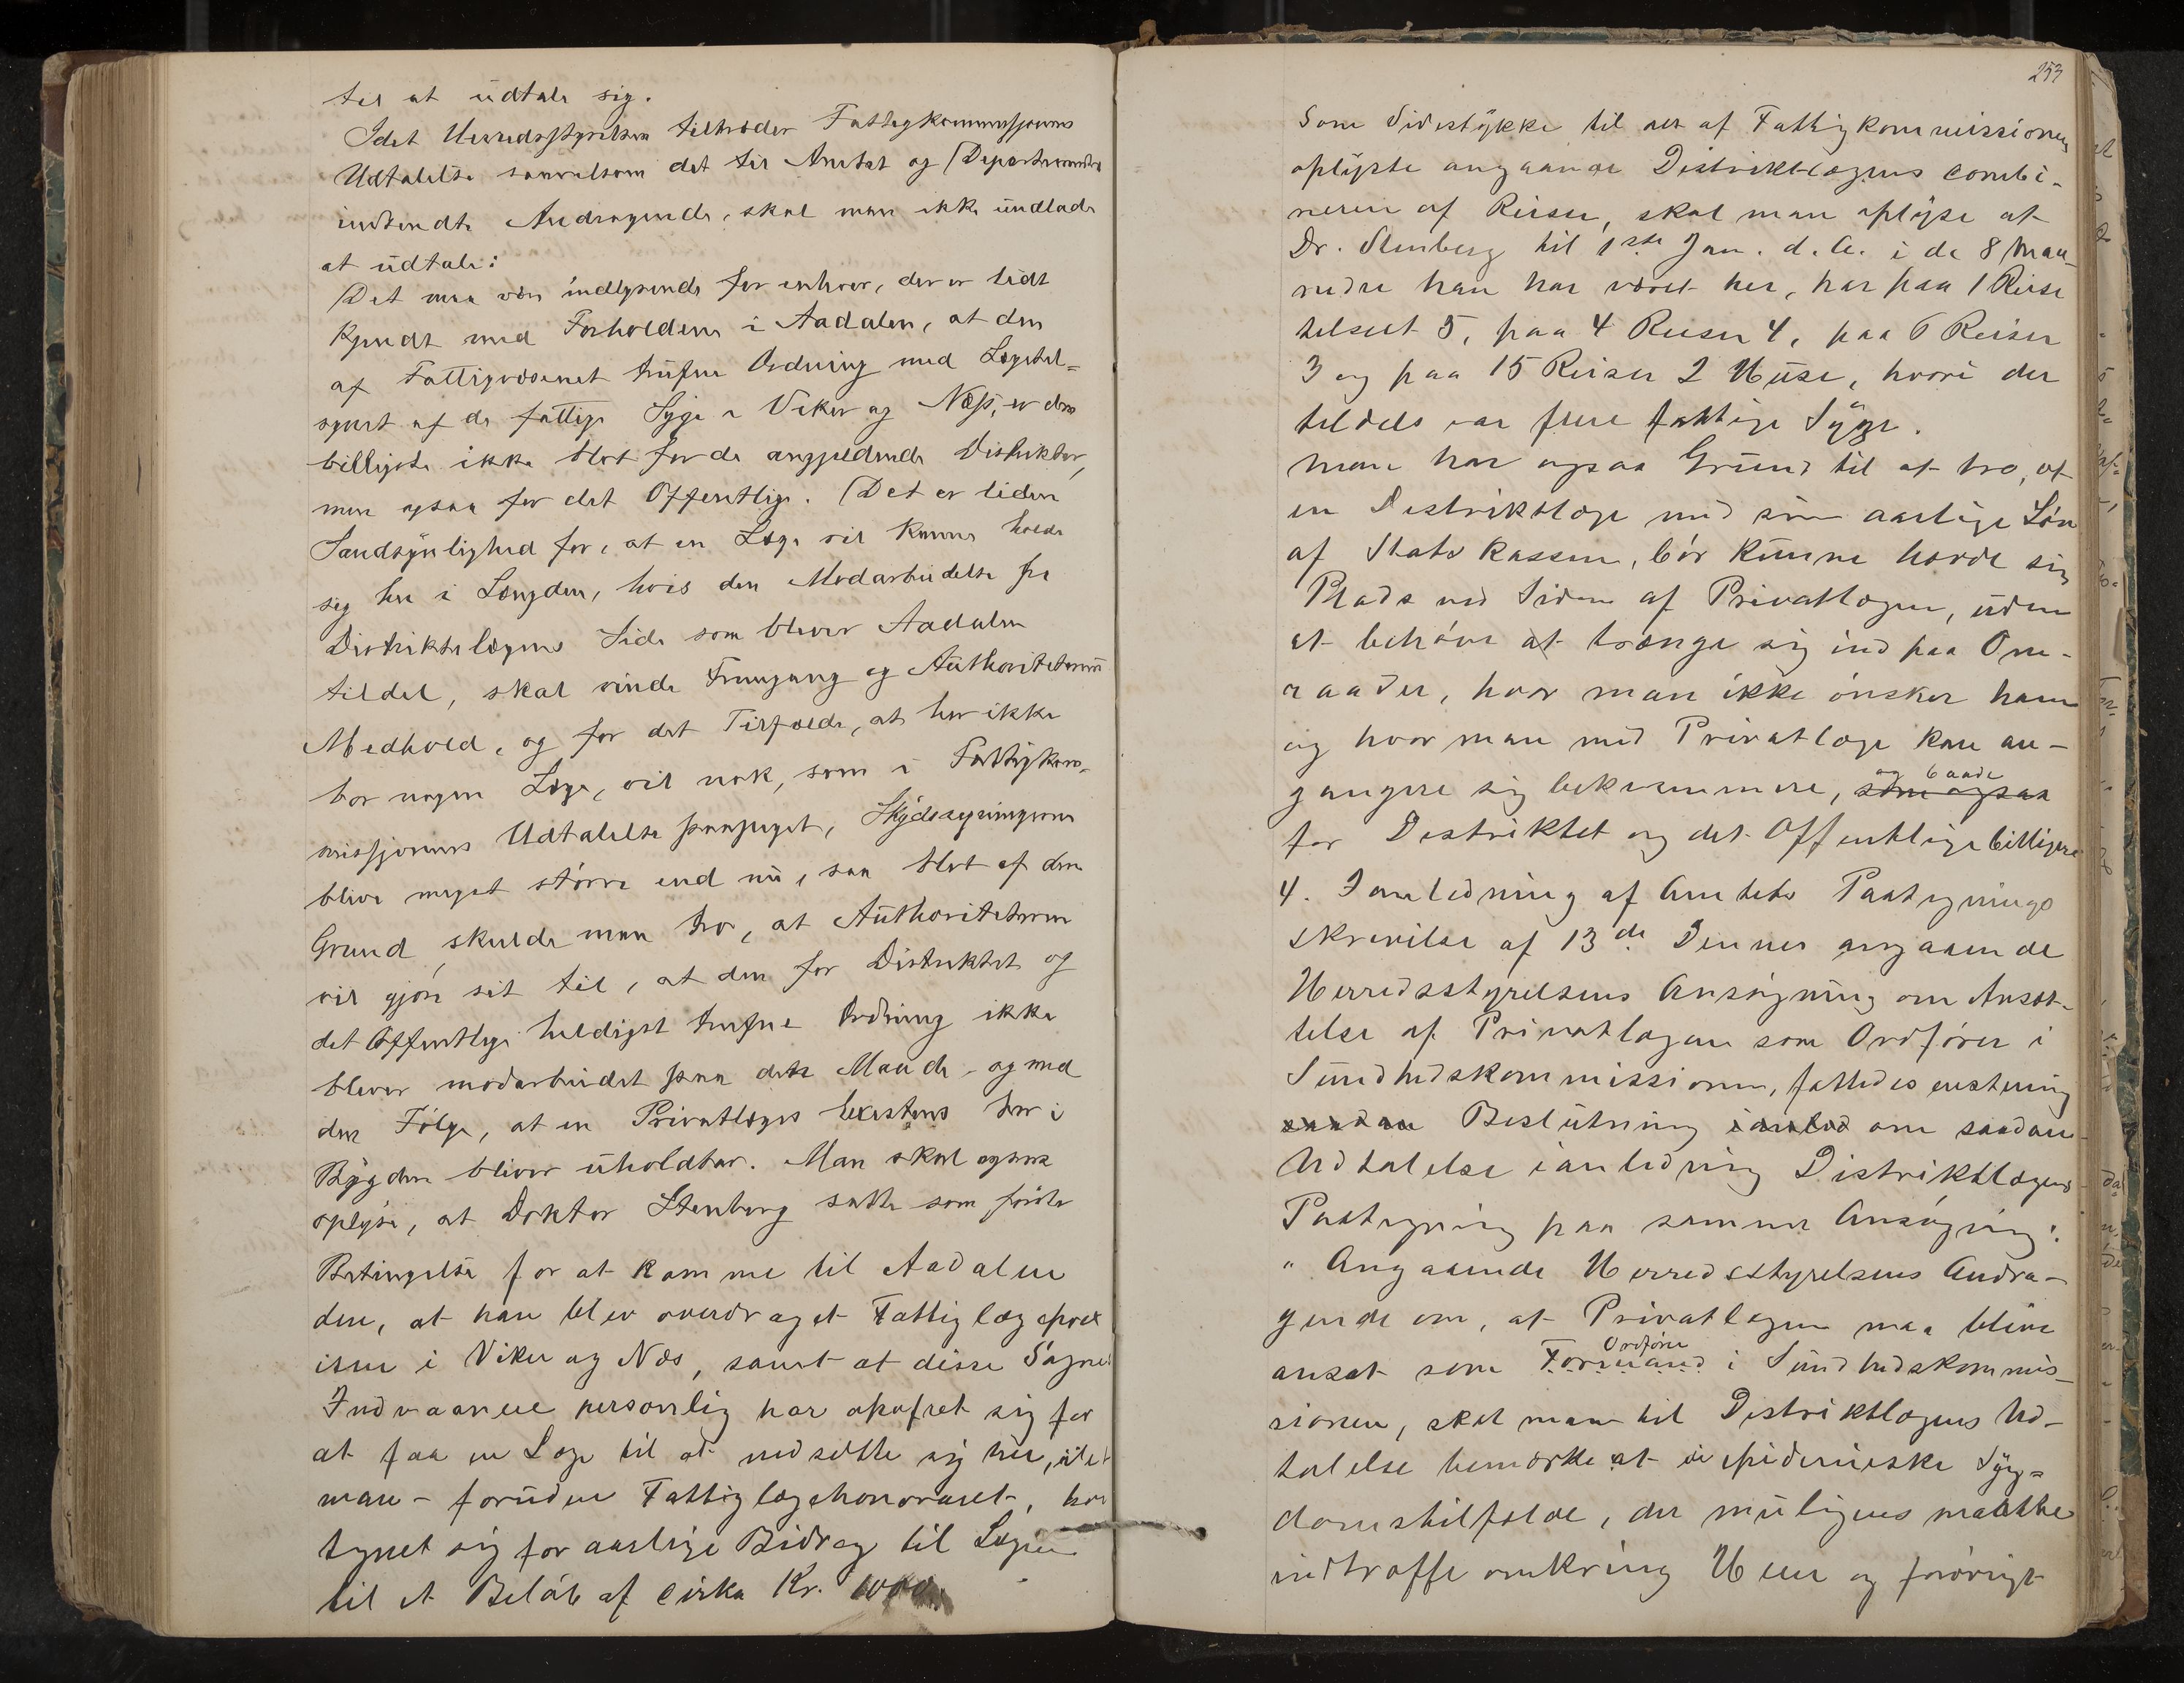 til at udtale sig.
Idet Herredsstyrelsen tiltræder Fattigkommissjonens
Udtalelse saavelsom det til Amtet og Departementet
indsendte Andragende, skal man ikke undlade
at udtale:
Det maa være indlysende for enhver, der er lidt
kjendt med Forholdene i Aadalen, at den
af Fattigvæsenet trufne Ordning med Lægetil-
synet af de fattige Syge i Viker og Næs, er den
billigste ikke blot for de angjeldende Distrikter,
men ogsaa for det Offentlige. Det er liden
Sandsynlighed for, at en Læge vil kunne holde
sig her i Længden, hvis den Modarbeidelse fra
Distriktslægens Side som bliver Aadalen
tildel, skal vinde Fremgang og Authoriteternes
Medhold, og for det Tilfælde, at her ikke
bor nogen Læge, vil nok, som i Fattigkom-
missjonens Udtalelse paapeget, Skydsregningerne
blive meget større end nu, saa blot af den
Grund skulde man tro, at Authoriteterne
vil gjøre sit til, at den for Distriktet og
det Offentlige heldigst trufne Ordning ikke
bliver modarbeidet paa dette Maade og med
den Følge, at en Privatlæges Existens her i
Bygden bliver uholdbar. Man skal ogsaa
oplyse, at Doktor Stenberg satte som første
Betingelse for at komme til Aadalen
den, at han blev overdraget Fattiglægeprax
isen i Viker og Næs, samt at disse Sognes
Indvaanere personlig har opofret sig for
at faa en Læge til at nedsætte sig her, idet
man - foruden Fattiglægehonoraret, har
tegnet sig for aarlige Bidrag til Lægen
til et Beløb af cirka Kr. 1000.
253
Som Sidestykke til det af Fattigkommissionen
oplyste angaaende Distriktlægens combi-
neren af Reiser, skal man oplyse at
Dr. Stenberg til 1ste Jan. d. A. i de 8 Maa-
neder han har været her, har paa 1 Reise
tilseet 5, paa 4 Reiser 4, paa 6 Reiser
3 og paa 15 Reiser 2 Huse, hvori der
tildels var flere fattige Syge.
Man har ogsaa Grund til at tro, at
en Distriktslæge med sin aarlige Løn
af Statskassen, bør kunne hævde sin
Plads ved Siden af Privatlægen, uden
at behøve at trænge sig ind paa Om-
raader, hvor man ikke ønsker ham
og hvor man med Privatlæge kan an-
gangere sig bekvemmere, som ogsaa og baade
for Distriktet og det Offentlige billigere
4. I anledning af Amtets Paategnings
skrivelse af 13de Dennes angaaende
Herredsstyrelsens Ansøgning om Ansæt-
telse af Privatlægen som Ordfører i
Sundhedskommissionen, fattedes enstemig
saadan Beslutning ianled om saadan
Udtalelse ianledning Distriktlægens
Paategning paa samme Ansøgning:
" Angaaende Herredsstyrelsens Andra-
gende om, at Privatlægen maa blive
ansat som Formand Ordfører i Sundhedskommis-
sionen, skal man til Distriktlægens Ud-
talelse bemærke at de epidemiske Syg-
domstilfælde, der muligens maatte
indtræffe omkring Heen og forøvrigt